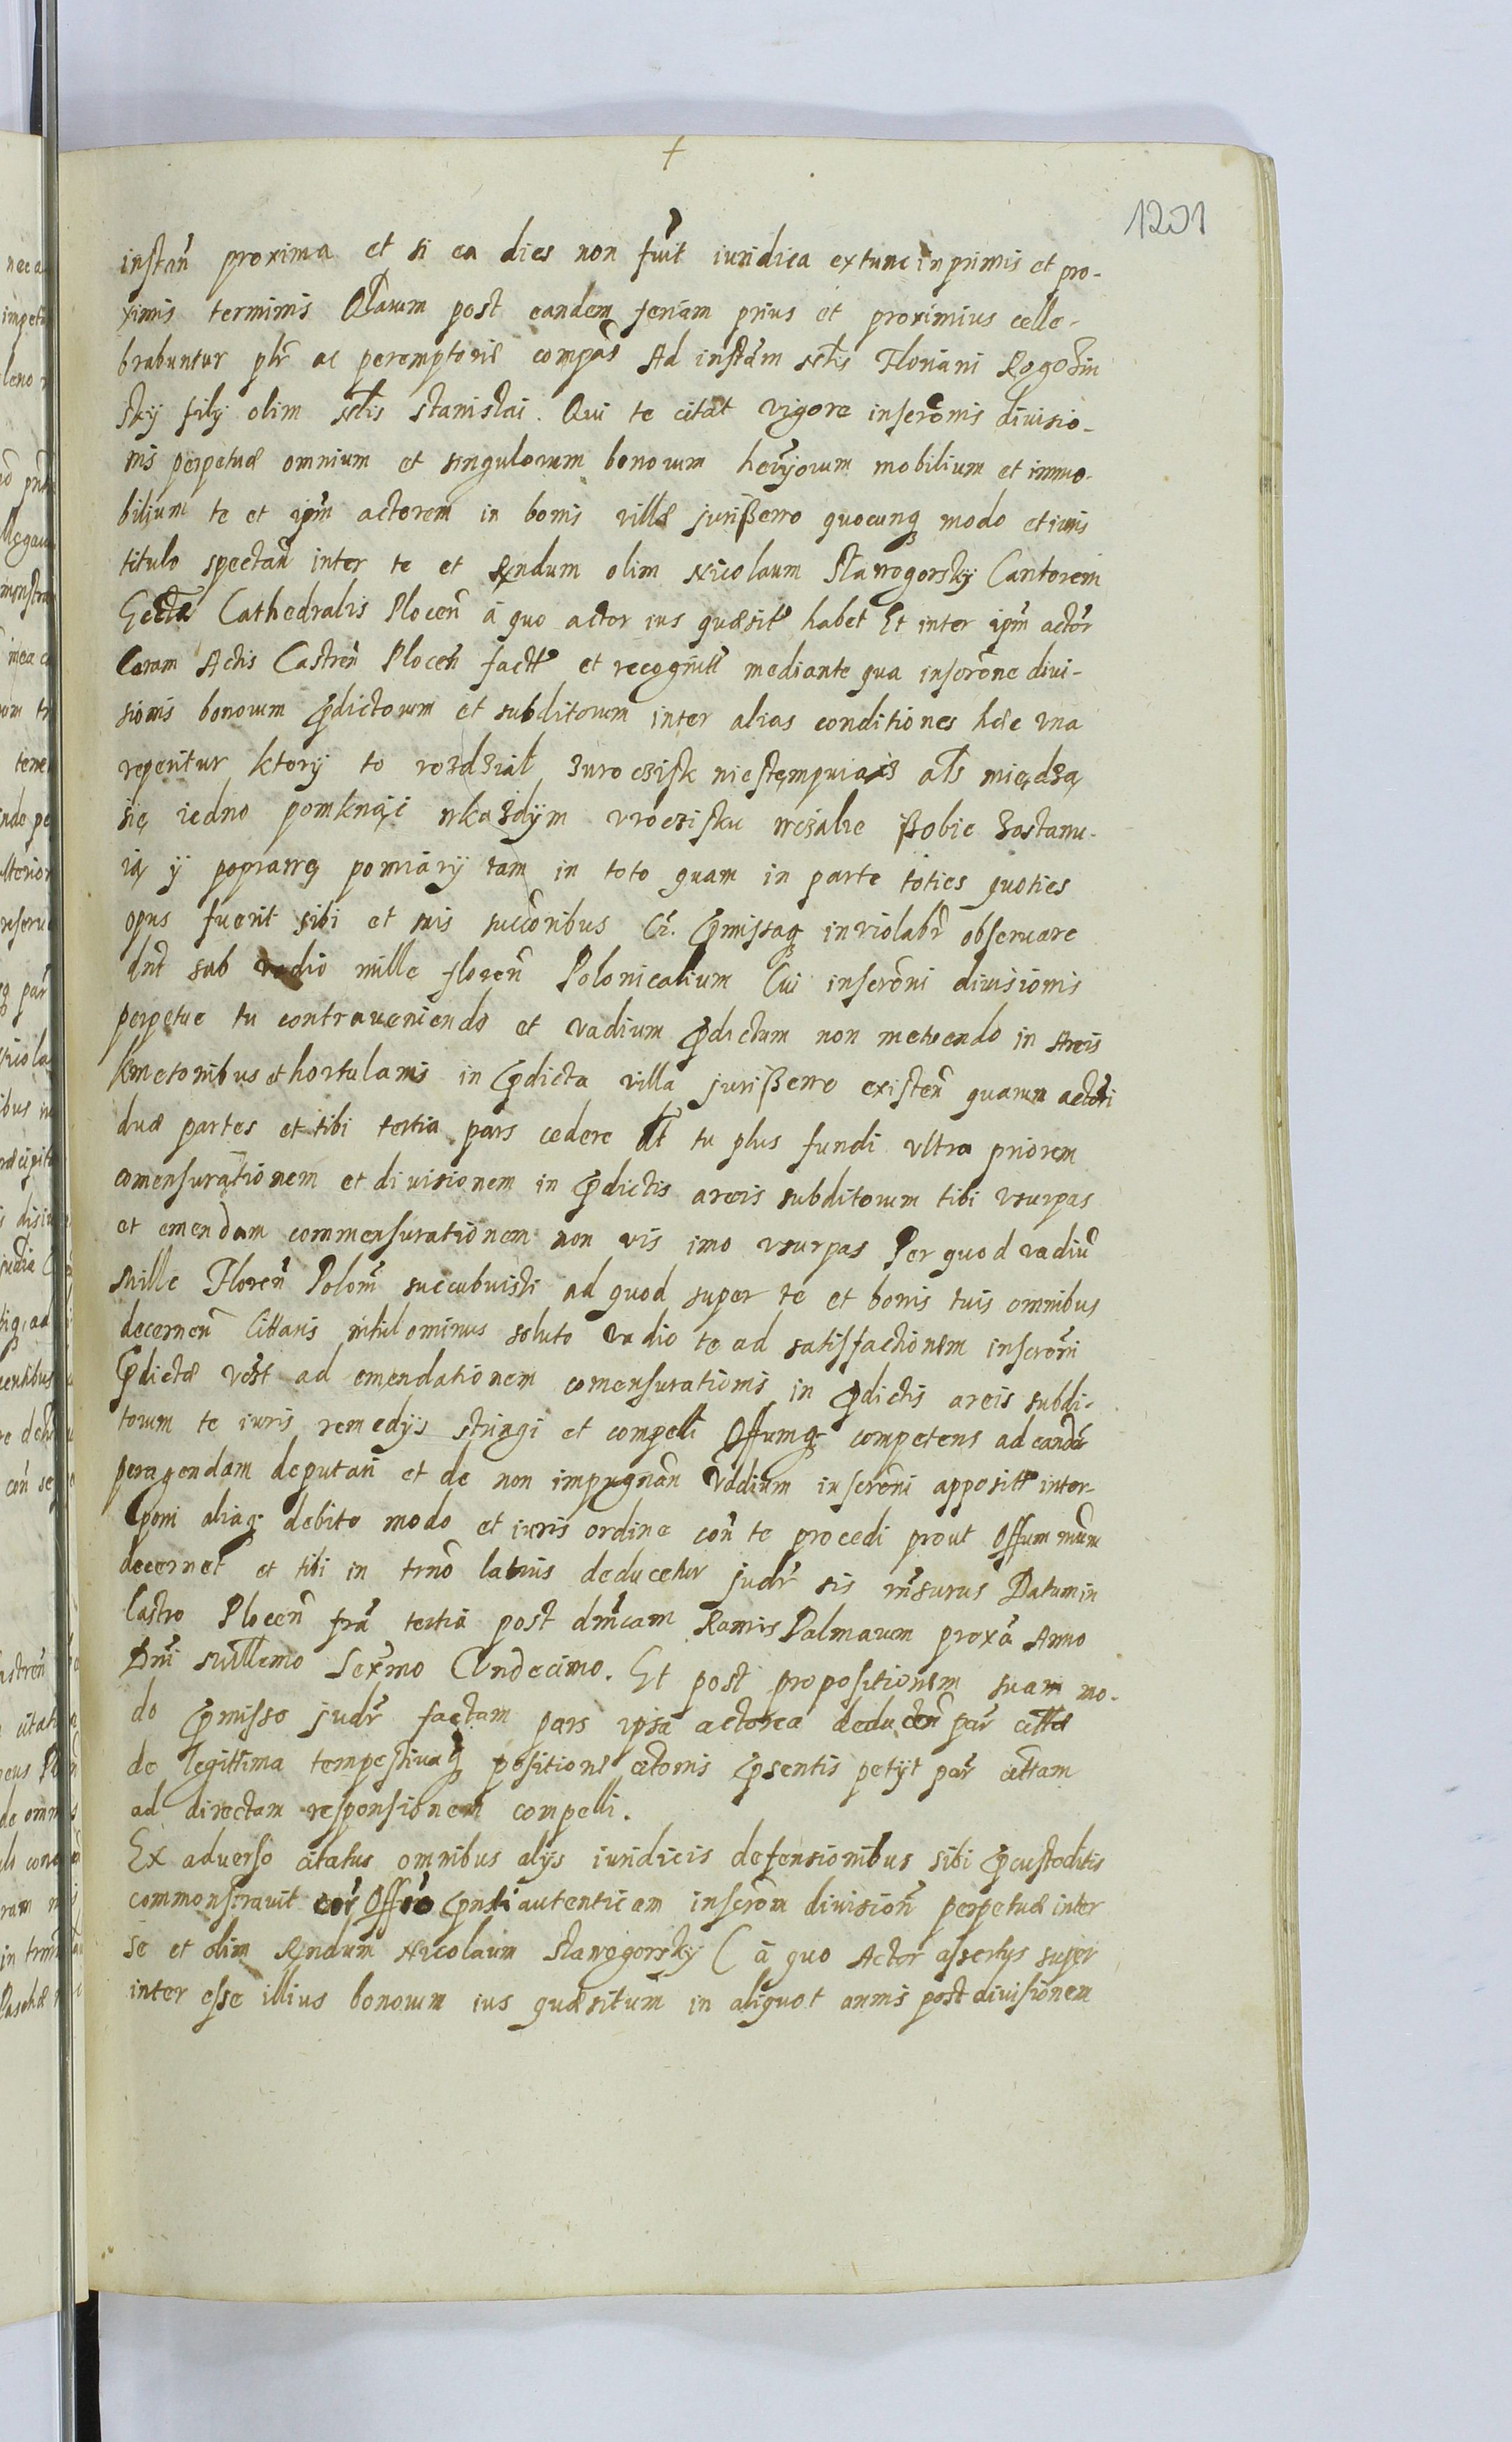 +
1201
instan̄ proxima et si ea dies non fu̅it iuridica extunc in primis et pro-
ximis terminis Q̄larum post eandem feriam prius et proximius celle-
brabuntur pltr ac peremptorie compās Ad instām Nlis Floriani Rogozin
skij filij olim Nlis Stanislai. Qui te citat vigore inscrōnis diuisio-
nis perpetuæ omnium et singulorum bonorum her̄ijorum mobilium et immo-
bilium te et ip̄m actorem in bonis villæ juriszewo quocunq modo et iuris
titulo spectan̄ inter te et Rndum olim Nicolaum Slawogorskij Cantorem
Eccliæ Cathedralis Plocen̄ á quo actor ius quæsit̄ habet Et inter ip̄m actōr
Coram Actis Castren̄ Plocen̄ fact̄ et recognit̄ mediante qua inscrōne diui-
sionis bonorum p̄dictorum et subditorum inter alias conditiones hæc vna
reperitur ktorij to rozdział zuroczisk niestęmpuiącz als międzą
się iedno pomknąć wkażdÿm vroczisku wczalie ßobie zostawu-
ią ÿ poprawę pomiárÿ tam in toto quam in parte toties quoties
opus fuerit sibi et suis succōribus Cź. p̄missaq inviolabr̄ obseruare
dn̄t sub vadio mille floren̄ Polonicalium Cui inscrōni diuisionis
perpetue tu contraueniendo et vadium p̄dictum non metuendo in areis
kmetonibus et hortulanis in p̄dicta villa juriszewo existen̄ quarum actori
duæ partes et tibi tertia pars cedere dt̄ tu plus fundi vltra priorem
comensurationem et diuisionem in p̄dictis areis subditorum tibi vsurpas
et emendam commensurationem non vis imo vsurpas Per quod vadiū
Mille Floren̄ Polon̄ succubuisti ad quod super te et bonis tuis omnibus
decernen̄ Cittaris nihilominus soluto vadio te ad satisfactionem inscrōni
p̄dictæ ve̅st ad emendationem comensurationis in p̄dictis areis subdi-
torum te iuris remedÿs stringi et compelli Offumq competens ad eandē
peragendam deputari et de non impugnan̄ Vadium inscrōni apposit̄ inter-
poni aliaq debito modo et iuris ordine con̄ te procedi prout Offum nrūm
decernet et tibi in trn̄o latius deducetur judr̄ sis rn̄surus Datum in
Castro Plocen̄ fr̄a tertia post dn̄icam Ramis Palmarum prox̄a Anno
Dn̄i Millemo Sex̄mo Vndecimo. Et post propositionem suam mo-
do p̄misso judr̄ factam pars ipsa actorea deducen̄ par̄ citt̄æ
de legittima tempestiuaq positione actoris p̄sentis petijt par̄ citt̄am
ad directam responsionem compelli.
Ex aduerso citatus omnibus alijs iuridicis defensionibus sibi p̄custoditis
commonstrauit cor̄ Offio p̄nti autenticam inscrōm diuision̄ perpetuæ inter
se et olim Rndum Nicolaum Slawogorskÿ ( á quo Actor assertus super
inter esse illius bonorum ius quæsitum in aliquot annis post diuisionem